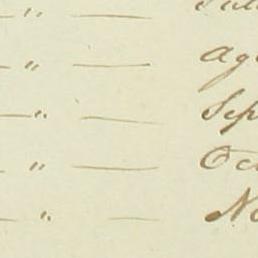 — " — Jul
— " — Ag
— " — Sep
— " — Oc
— " — No